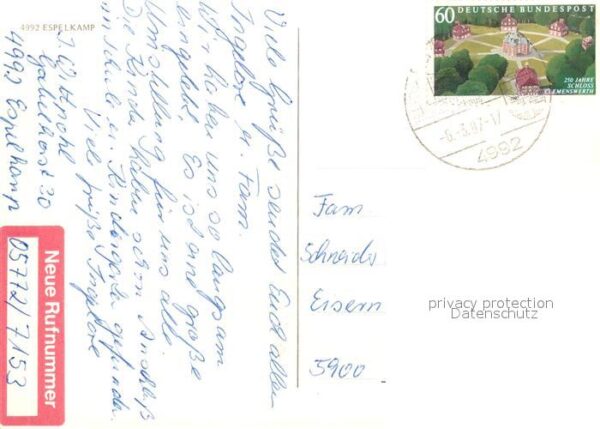 4992 ESPELKAMP
Viele Grüße sendet Euch allen
Ingelore u. Fam.
Wir haben uns so langsam
eingelebt. Es ist eine große
Umstellung für uns alle.
Die Kinder haben schon Anschluß
in Schule u. Kindergarten gefunden.
Viele Grüße Ingelore
Gabelhorst 20
4992 Espelkamp
Neue Rufnummer
05772/7153
60 DEUTSCHE BUNDESPOST
250 JAHRE
SCHLOSS
CLEMENSWERTH
-6.-3.87-17
4992
Fam
Schneider
Eisern
5900
privacy protection
Datenschutz